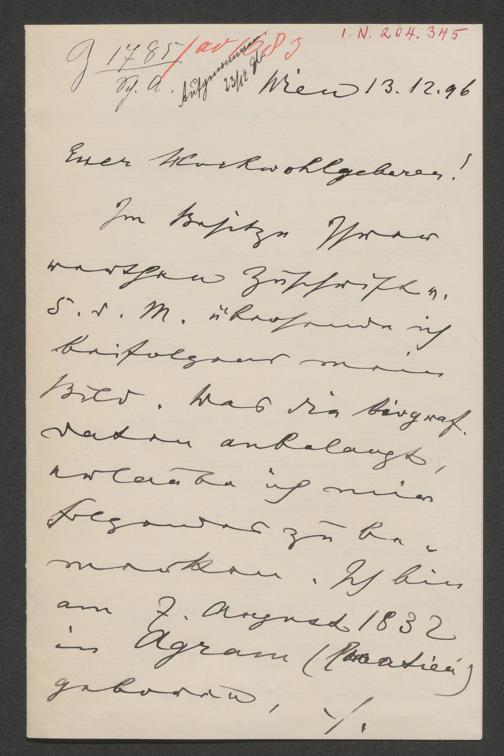 I.N. 204.345
1785
Aufgenommen
23/12 96
Wien 13.12.96
Euer Hochwohlgeboren!
Im Besitze Ihrer
werthen Zuschrift v.
5. d. M. übersende ich
beifolgend mein
Bild. Was die biograf.
Daten anbelangt,
erlaube ich mir
folgendes zu be-
merken. Ich bin
am 7. August 1832
in Agram (Kroatien)
geboren, ./.